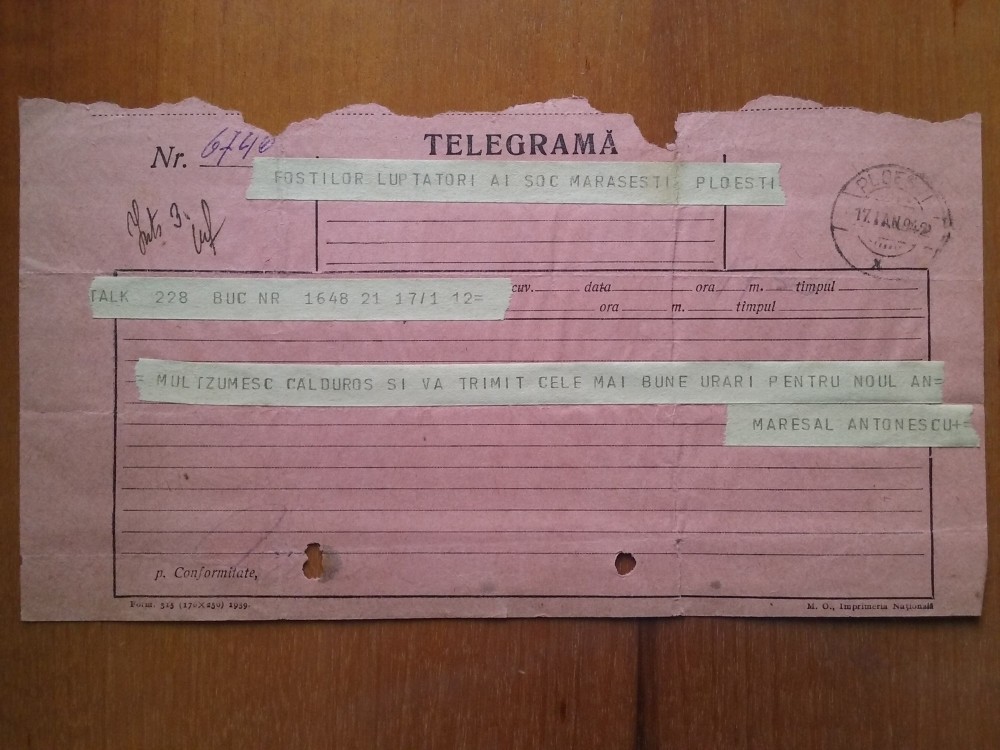 TELEGRAMĂ
Nr. 6740
FOSTILOR LUPTATORI AI SOC MARASESTI= PLOESTI
PLOEȘTI
17.IAN.942
TALK 228 BUC NR 1648 21 17/1 12=
cuv. data ora m. timpul
ora m. timpul
= MULTZUMESC CALDUROS SI VA TRIMIT CELE MAI BUNE URARI PENTRU NOUL AN=
MARESAL ANTONESCU+=
p. Conformitate,
Form. 515 (170×250) 1939.
M. O., Imprimeria Națională